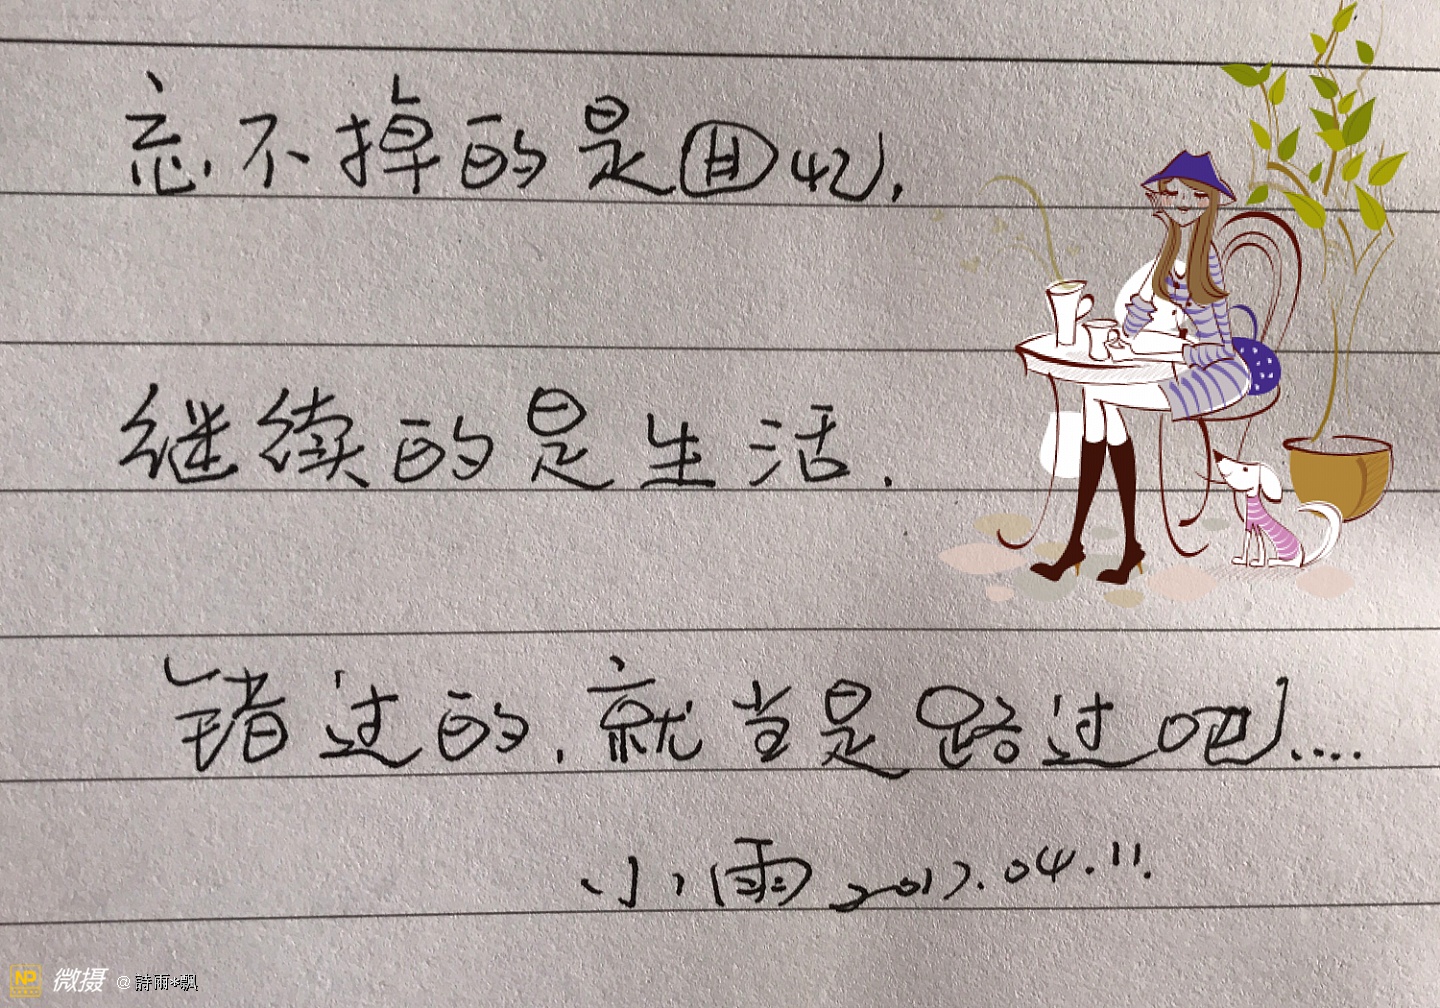 忘不掉的是回忆,
继续的是生活.
错过的,就当是路过吧....
小雨2017.04.11.
NP 微摄 @詩雨*飘